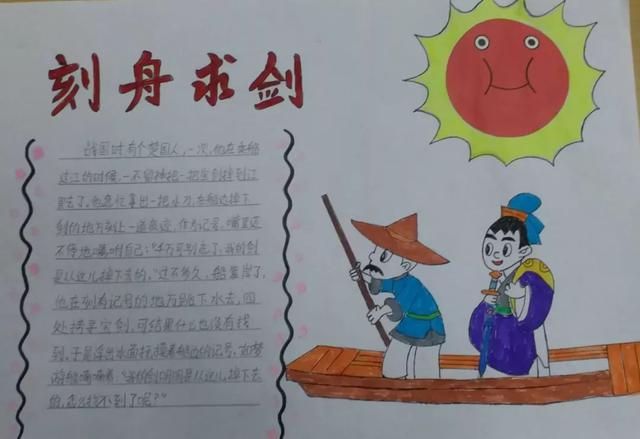 刻舟求剑
战国时有个楚国人,一次,他在乘船
过江的时候,一不留神把一把宝剑掉到江
里去了。他急忙拿出一把小刀,在船边掉下
剑的地方刻上一道痕迹,作为记号,嘴里还
不停地嘱咐自己:“千万可别忘了,我的剑
是从这儿掉下去的。”过不多久,船靠岸了,
他在刻有记号的地方跳下水去,四
处捞寻宝剑,可结果什么也没有找
到,于是浮出水面,摸着船边的记号,
喃喃着:“我的剑明明是从这儿掉下去
的,怎么找不到了呢?”